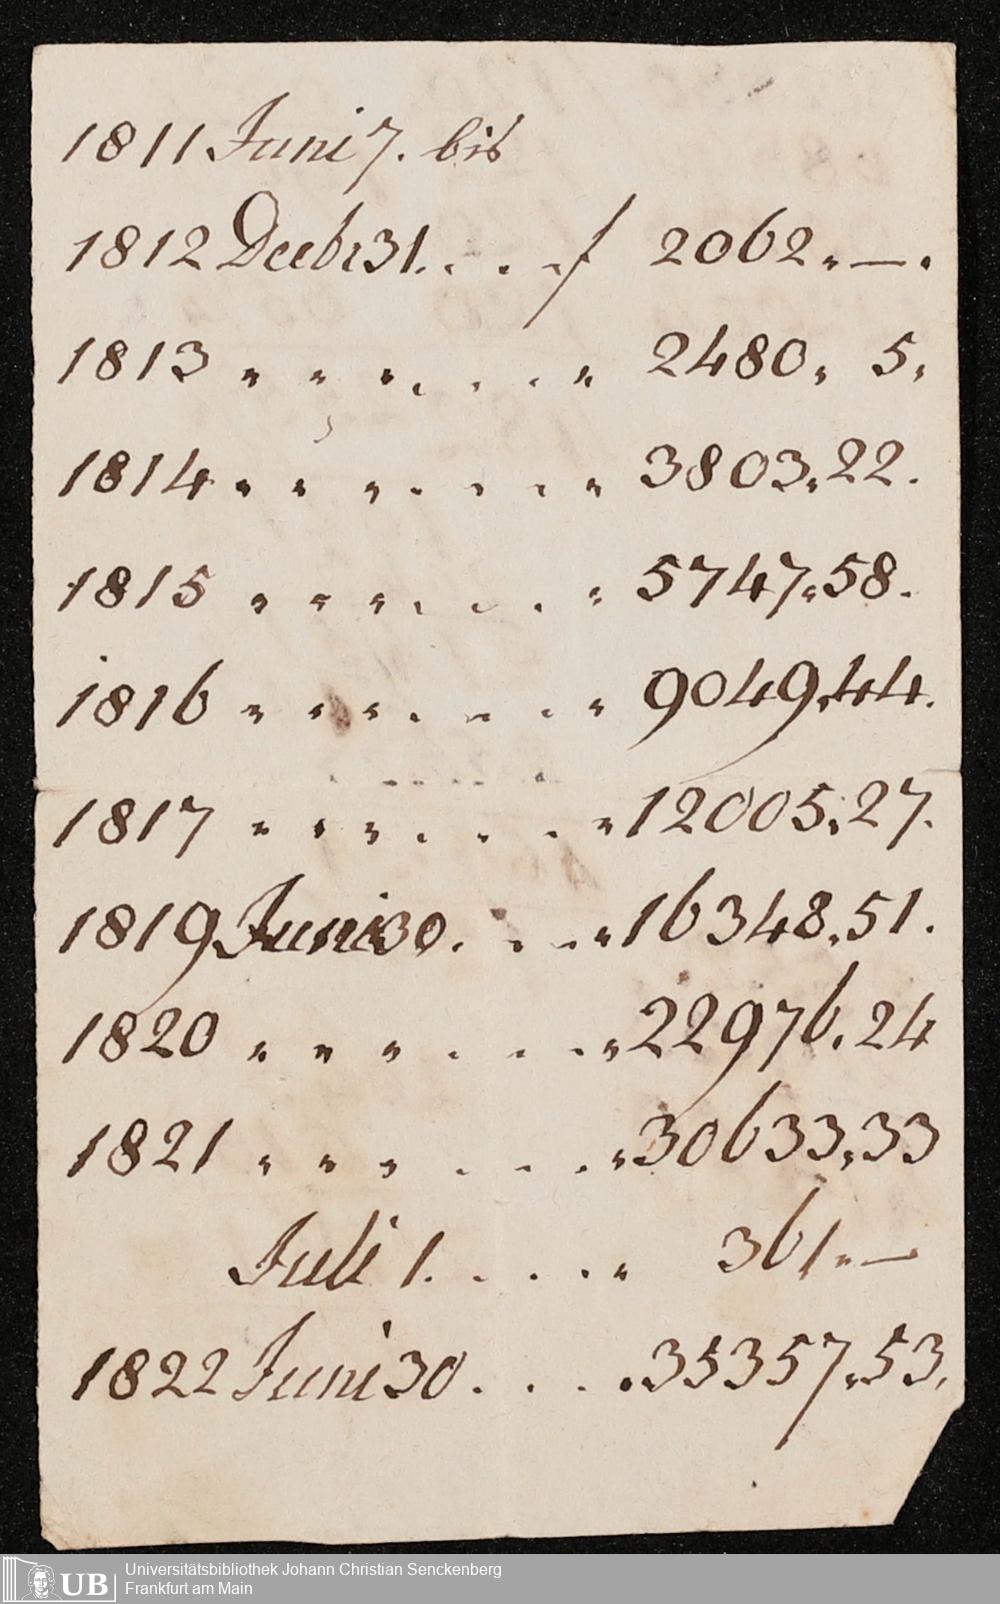 1811 Juni 7. bis
1812 Decbr 31. . . . f 2062 „ — .
1813 „ „ „ . . . „ 2480 „ 5 „
1814 „ „ „ . . . „ 3803 „ 22 .
1815 „ „ „ . . . „ 5747 „ 58 .
1816 „ „ „ . . . „ 9049 „ 44 .
1817 „ „ „ . . . „ 12005 „ 27 .
1819 Juni 30 . . . „ 16348 „ 51 .
1820 „ „ „ . . . „ 22976 „ 24
1821 „ „ „ . . . „ 30633 „ 33
Juli 1. . . . . „ 361 „ —
1822 Juni 30 . . . . 35357 „ 53 .
Universitätsbibliothek Johann Christian Senckenberg
Frankfurt am Main
UB